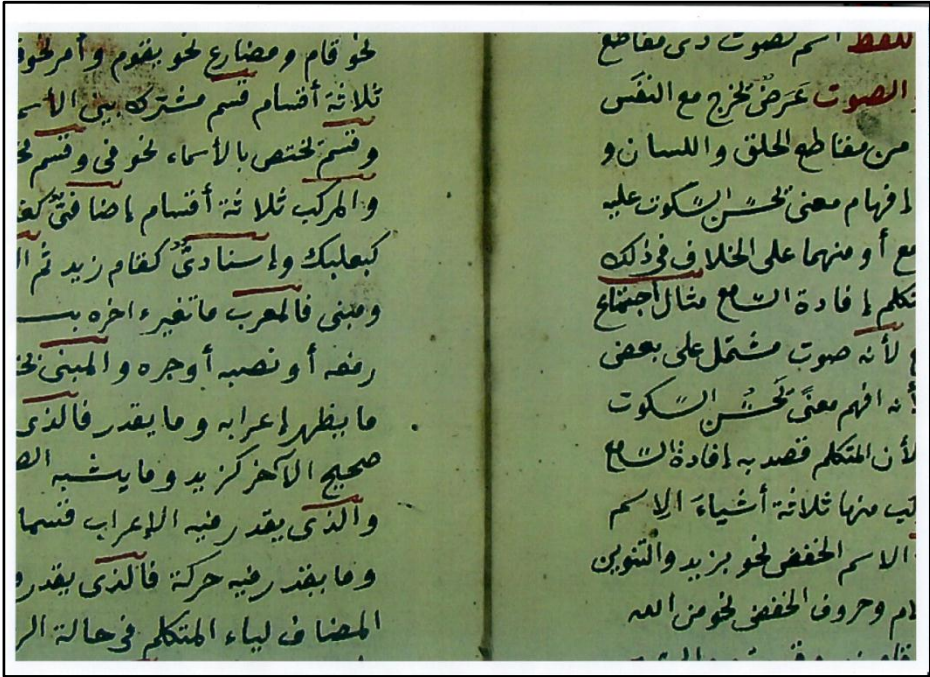 اللفظ اسم لصوت ذى مقاطع
الصوت عَرَضٌ يخرج مع النفَس
من مقاطع الحلق واللسان و
إفهام معنى يحسن السكوت عليه
مع أو منهما على الخلاف فى ذلك
تكلم إفادة السامع مثال اجتماع
لأنه صوت مشتمل على بعض
لأنه افهم معنًى يَحْسُن السكوت
لأن المتكلم قصد به إفادة السامع
كب منها ثلاثة أشياءَ الاسم
الاسم الخفض نحو بزيد والتنوين
لام وحروف الخفض نحو من الله
نحو قام ومضارع نحو يقوم وأمر نحو
ثلاثة أقسام قسم مشترك بين الأسم
وقسم يختص بالأسماء نحو فى وقسم يخ
والمركب ثلاثة أقسام إضافىٌّ كغ
كبعلبك وإسنادىٌّ كقام زيد ثم ال
ومبنى فالمعرب ما تغير ءاخره بسـ
رفعه أو نصبه أو جره والمبنى بخ
ما يظهر إعرابه وما يقدر فالذى
صحيح الآخر كزيد وما يشبه الص
والذى يقدر فيه الإعراب قسما
وما يقدر فيه حركة فالذى يقدر و
المضاف لياء المتكلم فى حالة الر